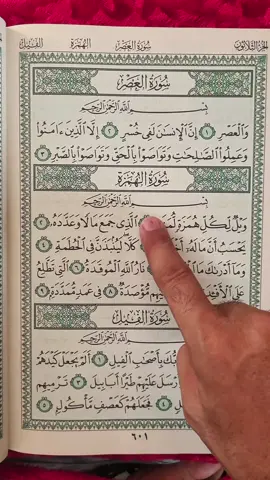 الجزء الثلاثون سورة العصر الهمزة الفيل
سُورَةُ العَصْرِ
بِسْمِ اللَّهِ الرَّحْمَٰنِ الرَّحِيمِ
وَٱلْعَصْرِ ١ إِنَّ ٱلْإِنسَٰنَ لَفِى خُسْرٍ ٢ إِلَّا ٱلَّذِينَ ءَامَنُوا۟
وَعَمِلُوا۟ ٱلصَّٰلِحَٰتِ وَتَوَاصَوْا۟ بِٱلْحَقِّ وَتَوَاصَوْا۟ بِٱلصَّبْرِ ٣
سُورَةُ الهُمَزَةِ
بِسْمِ اللَّهِ الرَّحْمَٰنِ الرَّحِيمِ
وَيْلٌ لِّكُلِّ هُمَزَةٍ ٱلَّذِى جَمَعَ مَالًا وَعَدَّدَهُۥ ٢
يَحْسَبُ أَنَّ مَالَهُۥٓ كَلَّا لَيُنۢبَذَنَّ فِى ٱلْحُطَمَةِ ٤
وَمَآ أَدْرَىٰكَ نَارُ ٱللَّهِ ٱلْمُوقَدَةُ ٦ ٱلَّتِى تَطَّلِعُ
عَلَى مُّؤْصَدَةٌ ٨ فِى عَمَدٍ مُّمَدَّدَةٍۭ ٩
سُورَةُ الفِيلِ
اللَّهِ الرَّحْمَٰنِ الرَّحِيمِ
بِأَصْحَٰبِ ٱلْفِيلِ ١ أَلَمْ يَجْعَلْ كَيْدَهُمْ
عَلَيْهِمْ طَيْرًا أَبَابِيلَ ٣ تَرْمِيهِم
فَجَعَلَهُمْ كَعَصْفٍ مَّأْكُولٍۭ ٥
٦٠١